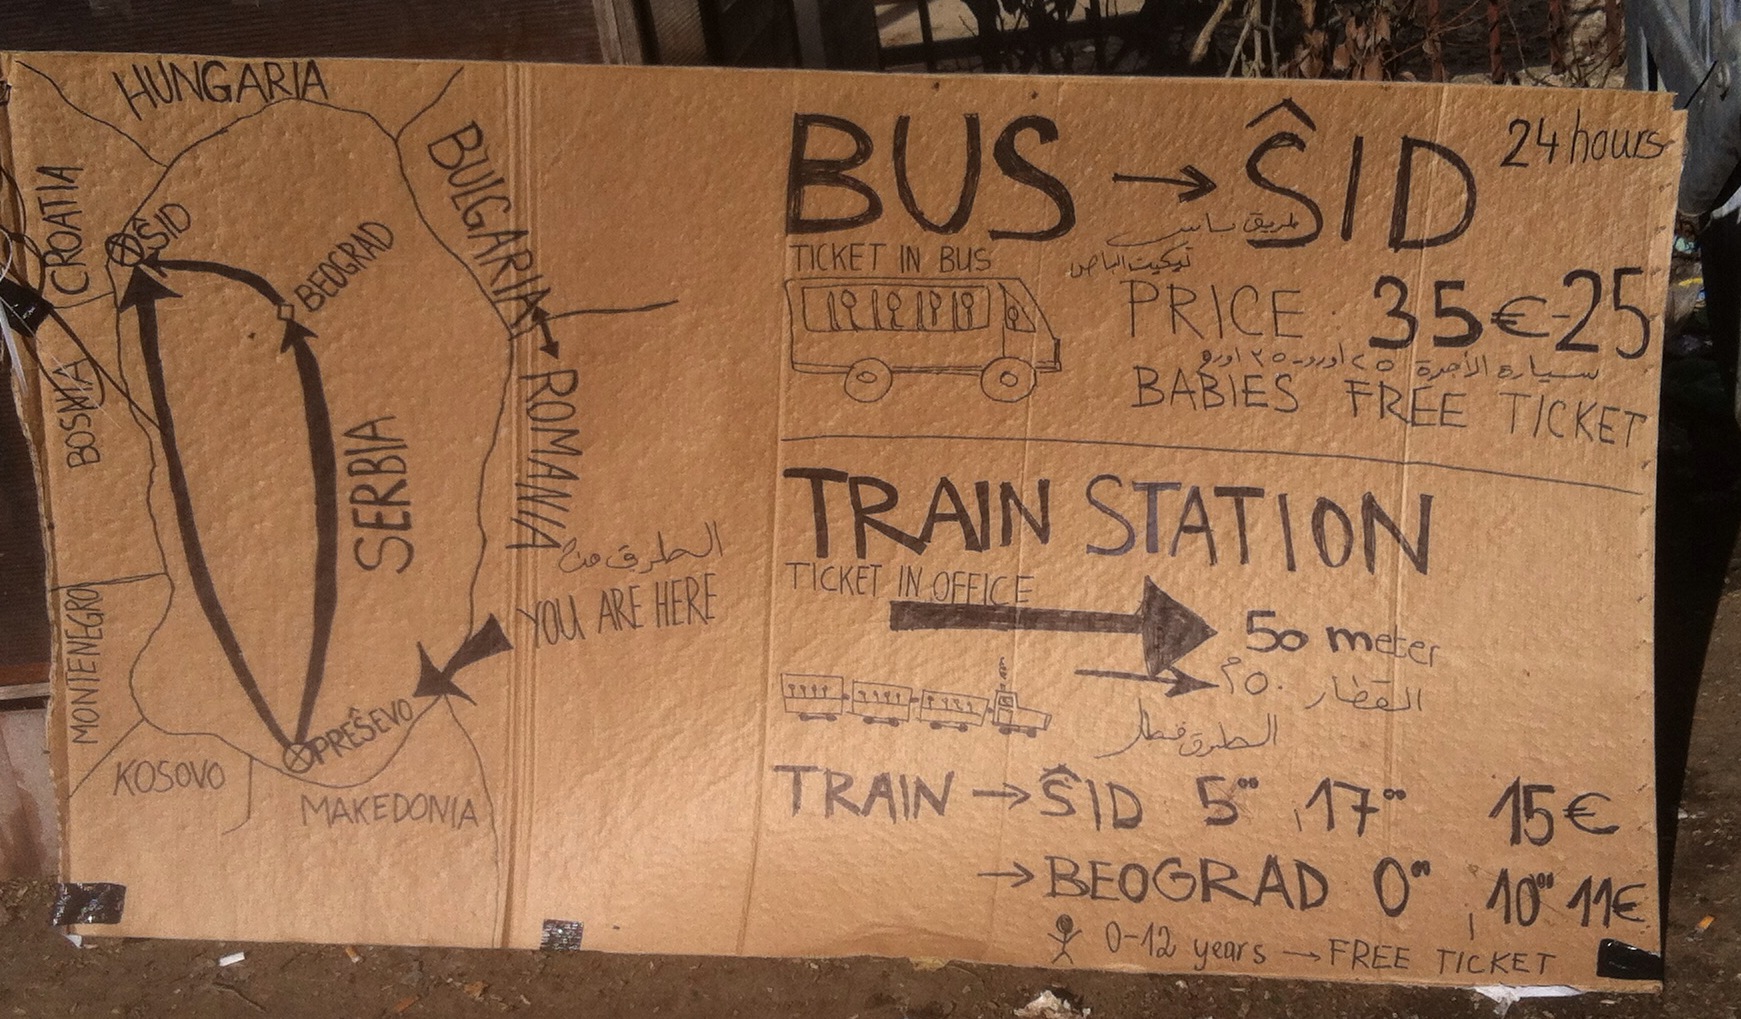 HUNGARIA
CROATIA
ŜID
BEOGRAD
BULGARIA
ROMANIA
BOSNIA
SERBIA
MONTENEGRO
الطريق من
YOU ARE HERE
PREŜEVO
KOSOVO
MAKEDONIA
BUS → ŜID 24 hours
طريق باس
TICKET IN BUS تيكيت الباص
PRICE: 35€-25
سيارة الأجرة ٢٥ اورو-٣٥ اورو
BABIES FREE TICKET
TRAIN STATION
TICKET IN OFFICE
50 meter
القطار ٥٠م
الطريق قطار
TRAIN → ŜID 5°° , 17°° 15€
→ BEOGRAD 0°° , 10°° 11€
0-12 years → FREE TICKET